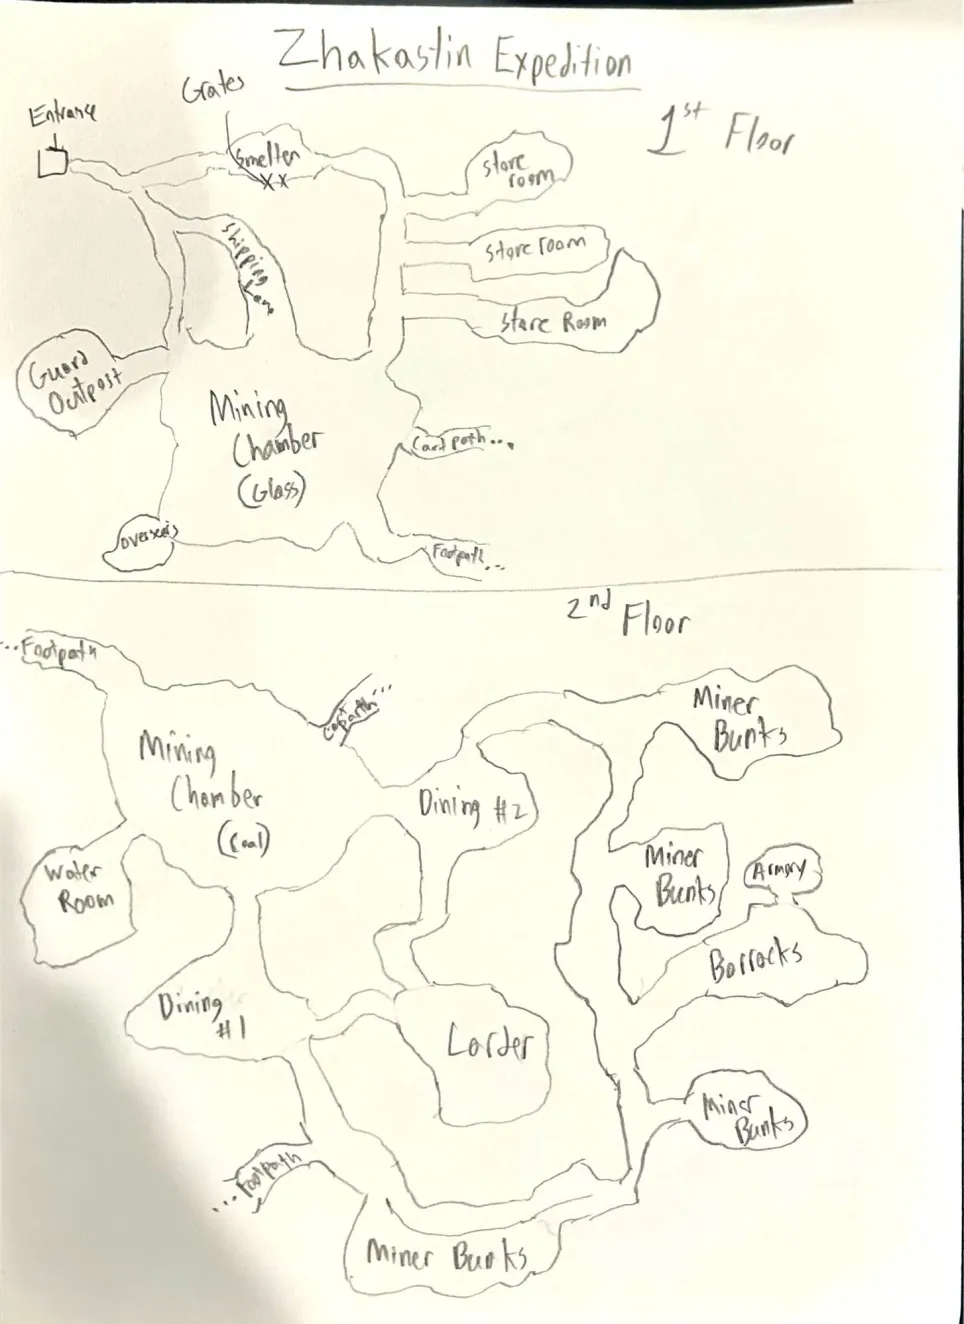 Zhakastin Expedition
1st Floor
Grates
Entrance
Smelter
XX
Store
room
Store room
Store Room
Shipping
Lane
Guard
Outpost
Mining
Chamber
(Glass)
Cart path...
Overseers
Footpath...
2nd Floor
...Footpath
Miner
Bunks
Mining
Chamber
(Coal)
Dining #2
Miner
Bunks
Armory
Water
Room
Barracks
Dining
#1
Larder
Miner
Bunks
...Footpath
Miner Bunks